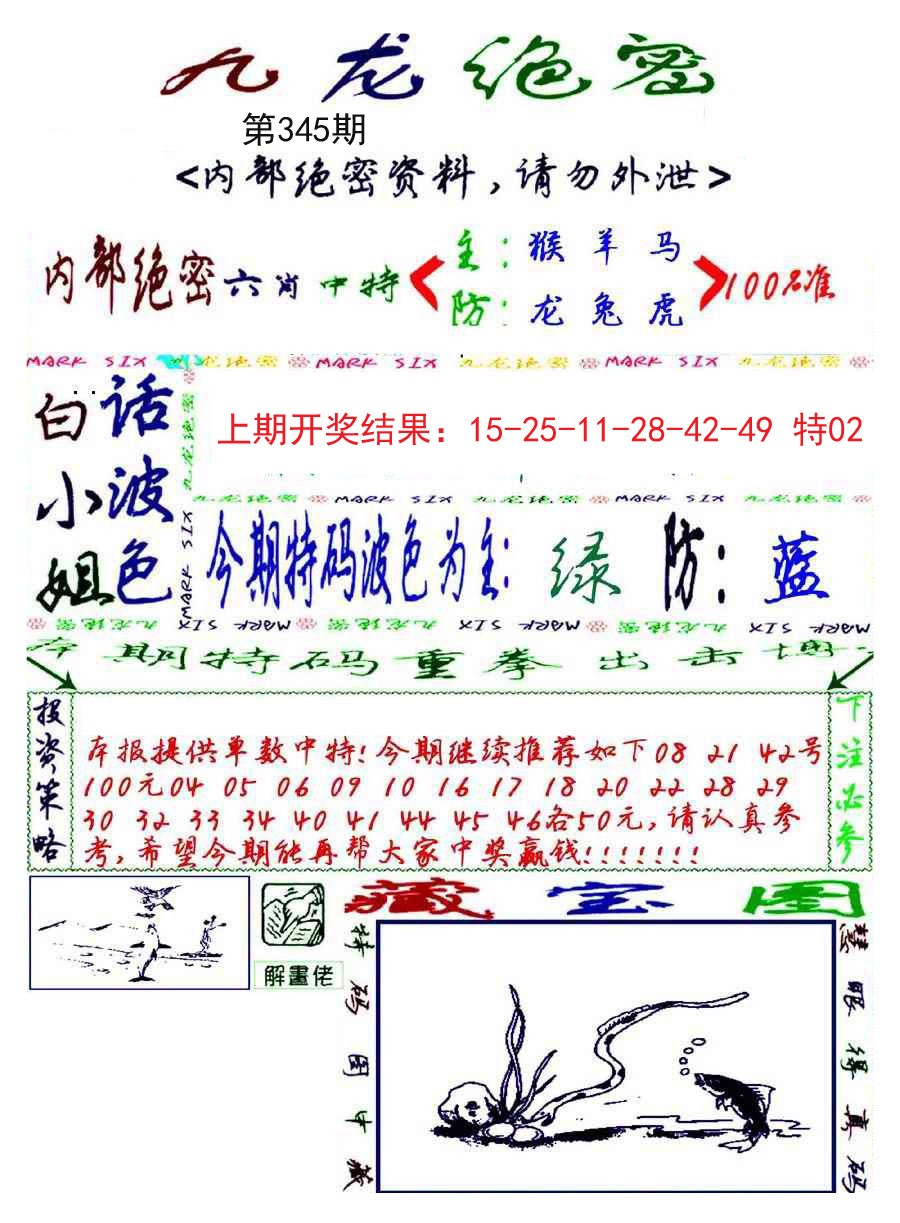 九龙绝密
第345期
<内部绝密资料,请勿外泄>
内部绝密六肖中特
主:猴羊马
防:龙兔虎
100%准
MARK SIX 九龙绝密 MARK SIX 九龙绝密 MARK SIX 九龙绝密 MARK SIX
白话
小波
姐色
九龙绝密 MARK SIX
上期开奖结果：15-25-11-28-42-49 特02
九龙绝密 MARK SIX 九龙绝密 MARK SIX 九龙绝密
今期特码波色为主:绿 防:蓝
九龙绝密 MARK SIX 九龙绝密 MARK SIX 九龙绝密 MARK SIX
本期特码重拳出击
投资策略
本报提供单数中特!今期继续推荐如下08 21 42号
100元04 05 06 09 10 16 17 18 20 22 28 29
30 32 33 34 40 41 44 45 46各50元,请认真参
考,希望今期能再帮大家中奖赢钱!!!!!!!
下注必参
解畫佬
藏宝图
特码图中藏
慧眼得真码